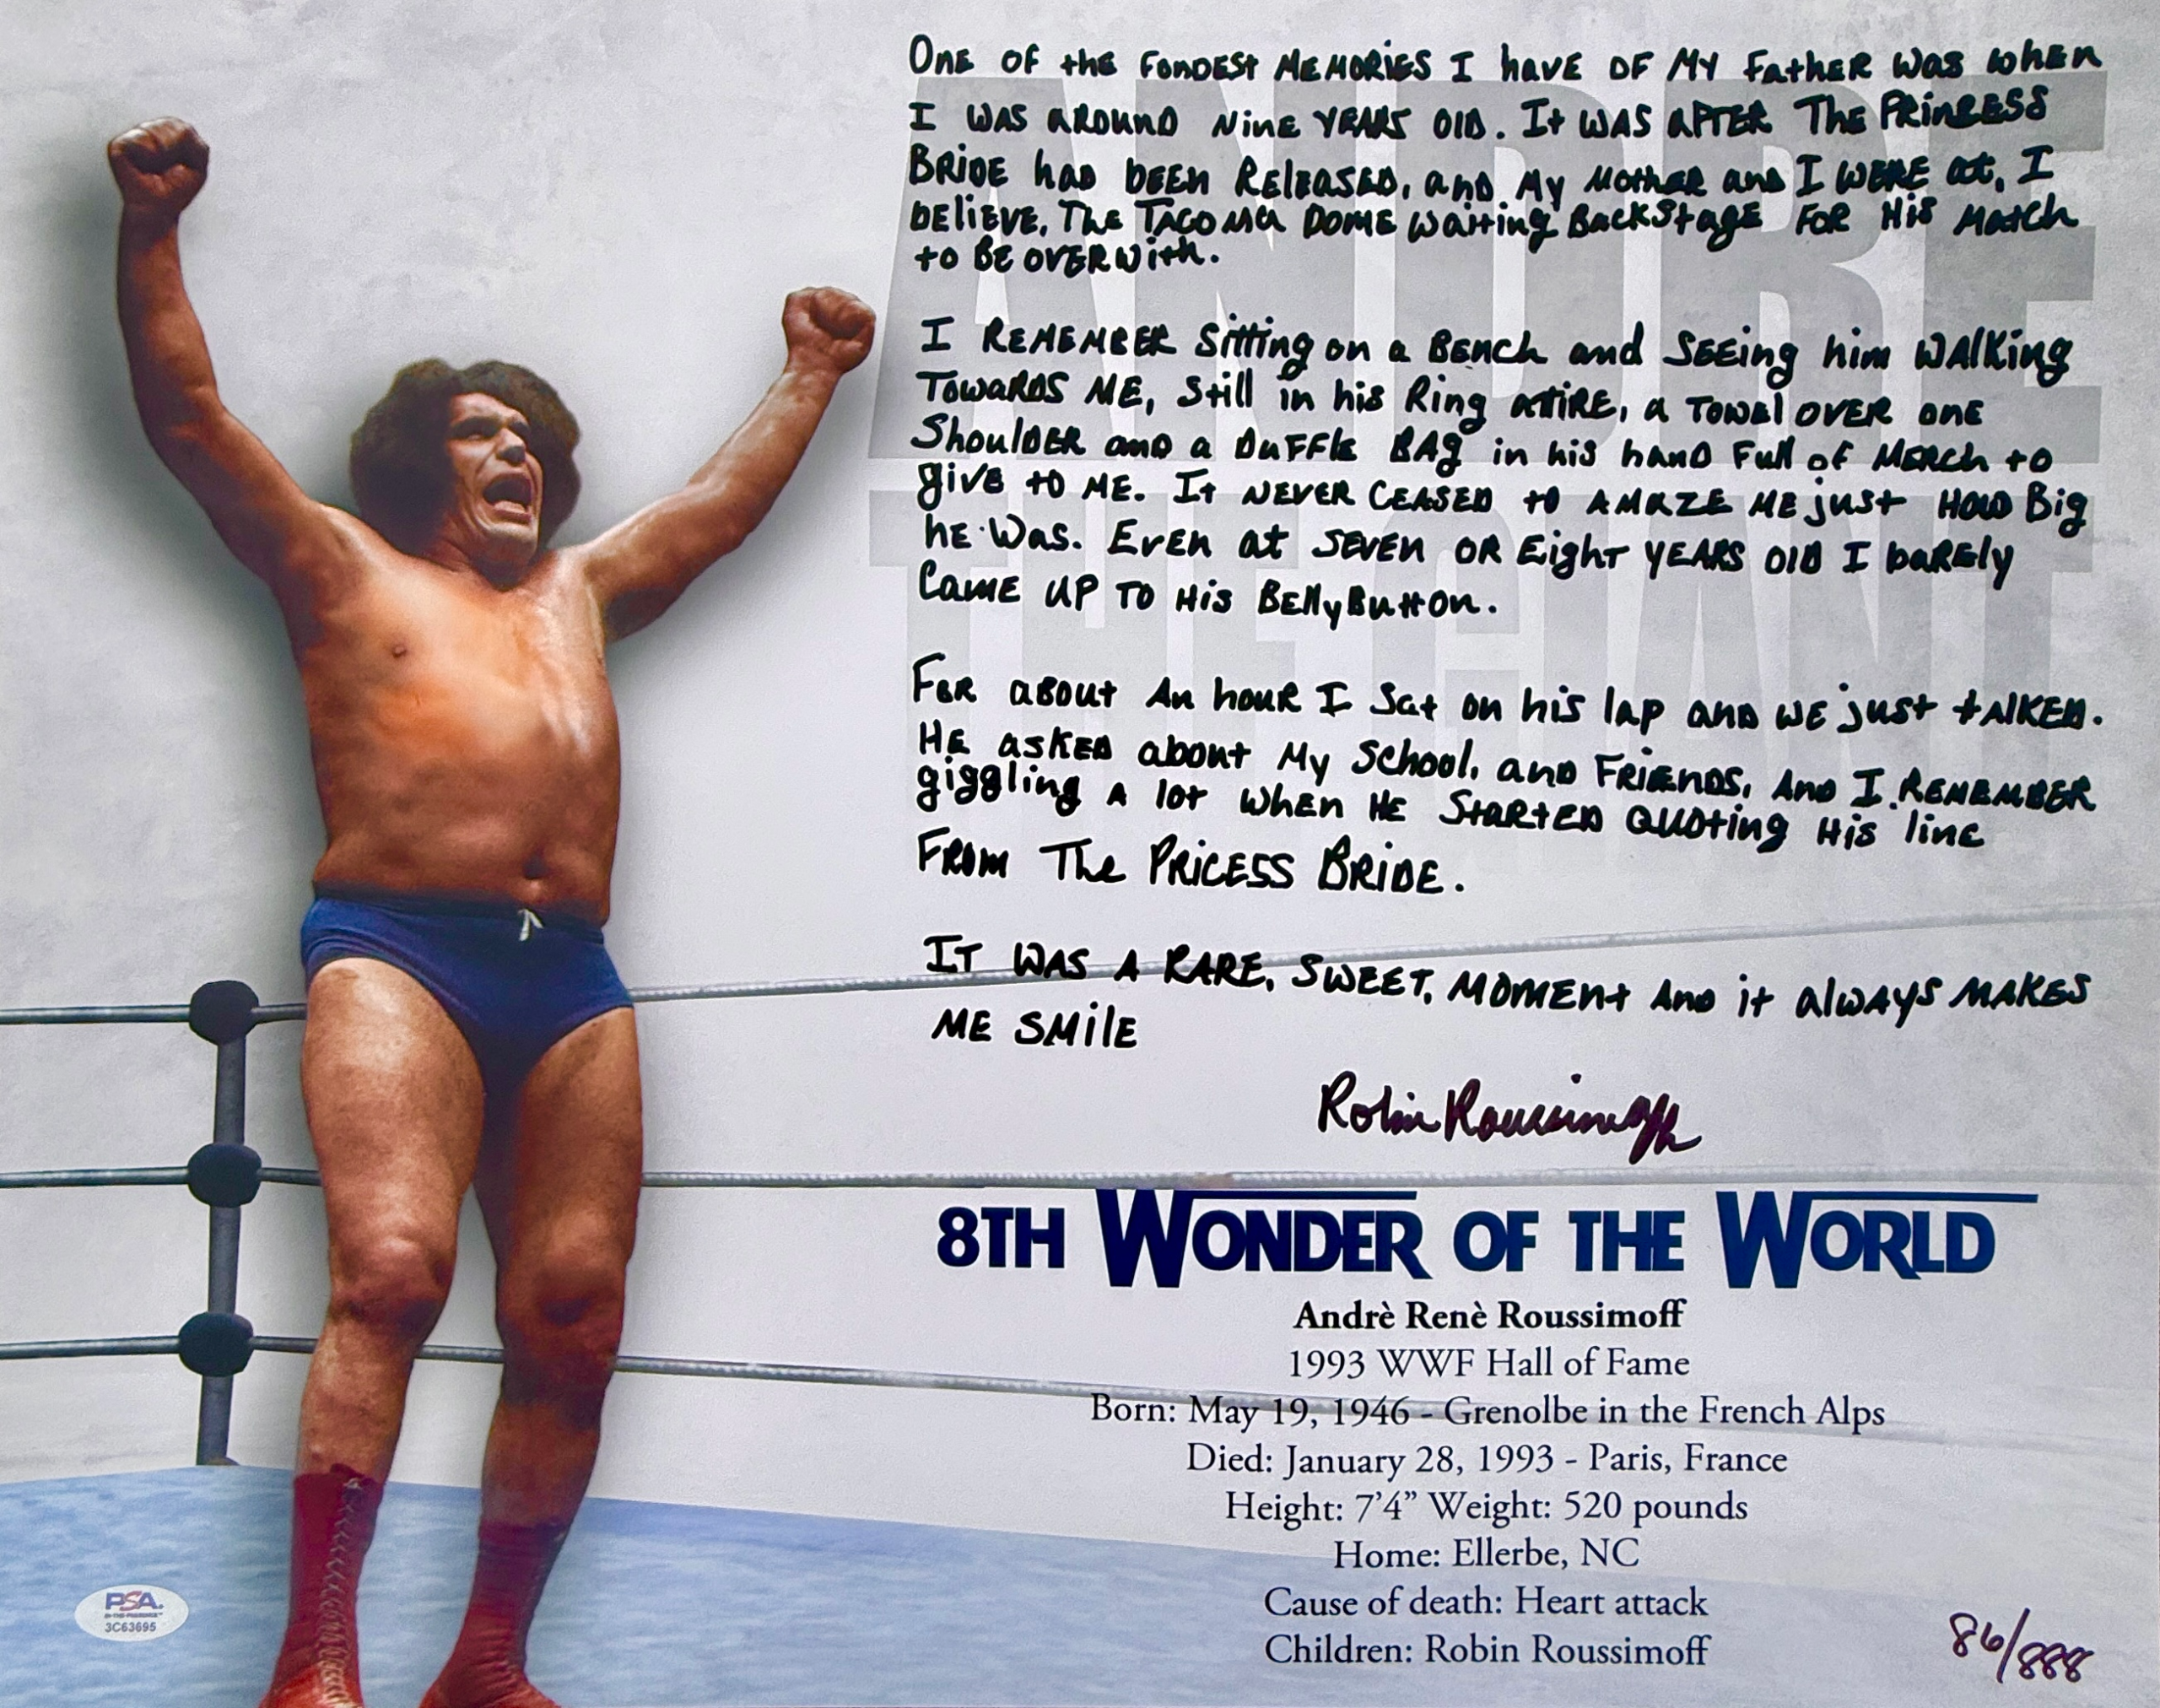 One of the fondest memories I have of my father was when
I was around nine years old. It was after The Princess
Bride had been released, and my mother and I were at, I
believe, The Tacoma Dome waiting backstage for his match
to be over with.
I remember sitting on a bench and seeing him walking
towards me, still in his ring attire, a towel over one
shoulder and a duffle bag in his hand full of merch to
give to me. It never ceased to amaze me just how big
he was. Even at seven or eight years old I barely
came up to his bellybutton.
For about an hour I sat on his lap and we just talked.
He asked about my school, and friends, and I remember
giggling a lot when he started quoting his line
from The Pricess Bride.
It was a rare, sweet, moment and it always makes
me smile
Robin Roussimoff
ANDRE
THE GIANT
8TH WONDER OF THE WORLD
Andrè Renè Roussimoff
1993 WWF Hall of Fame
Born: May 19, 1946 - Grenolbe in the French Alps
Died: January 28, 1993 - Paris, France
Height: 7’4” Weight: 520 pounds
Home: Ellerbe, NC
Cause of death: Heart attack
Children: Robin Roussimoff
PSA
IN-THE-PRESENCE
3C63695
86/888